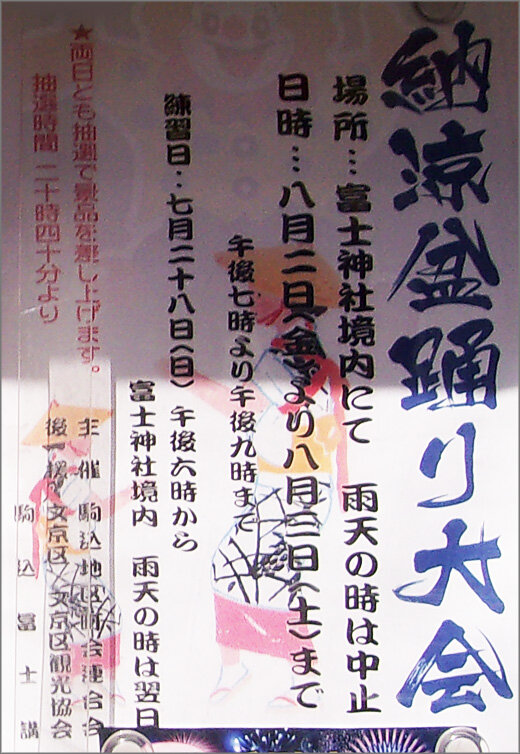 納涼盆踊り大会
場所…富士神社境内にて　雨天の時は中止
日時…八月二日(金)より八月三日(土)まで
午後七時より午後九時まで
練習日…七月二十八日(日)　午後六時から
富士神社境内　雨天の時は翌日
★両日とも抽選で景品を差し上げます。
抽選時間　二十時四十分より
主催　駒込地区町会連合会
後援　文京区　文京区観光協会
駒込富士講